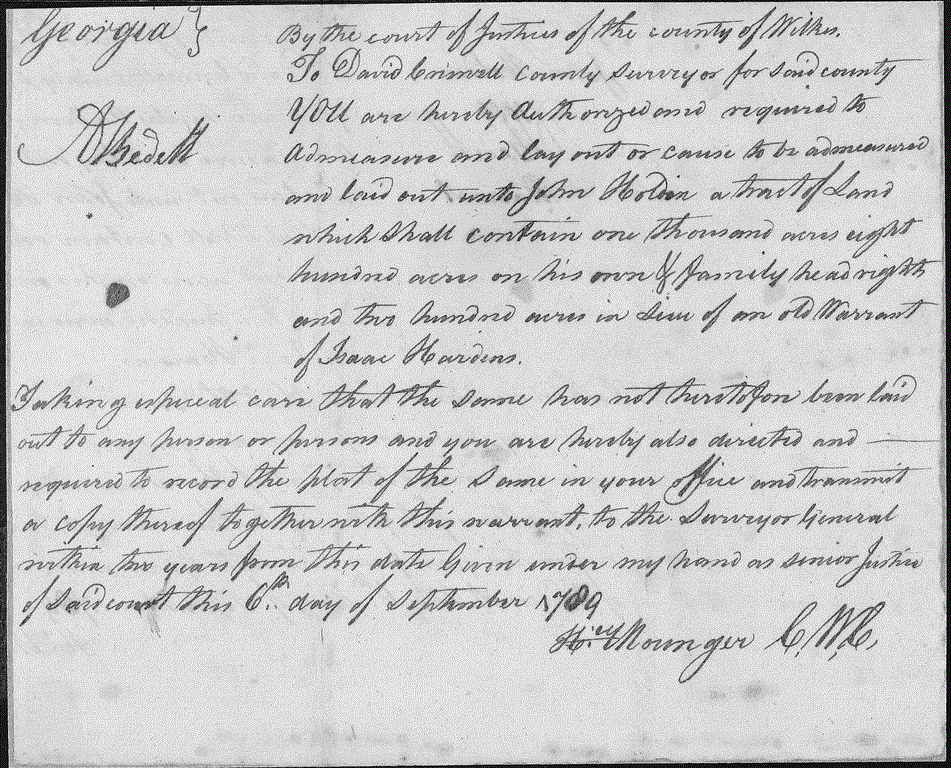 Georgia } By the court of Justices of the county of Wilkes.
To David Criswell County Surveyor for said county
YOU are hereby Authorized and required to
ABedell
admeasure and lay out or cause to be admeasured
and laid out unto John Holdin a tract of Land
which shall contain one thousand acres eight
hundred acres on his own & family head right
and two hundred acres in Lieu of an old Warrant
of Isaac Hardens.
Taking especial care that the same has not heretofore been laid
out to any person or persons and you are hereby also directed and —
required to record the plat of the same in your office and transmit
a copy thereof together with this warrant, to the Surveyor General
within two years from this date Given under my hand as senior Justice
of said court this 6th. day of September 1789
Hny Mounger C.W.C.